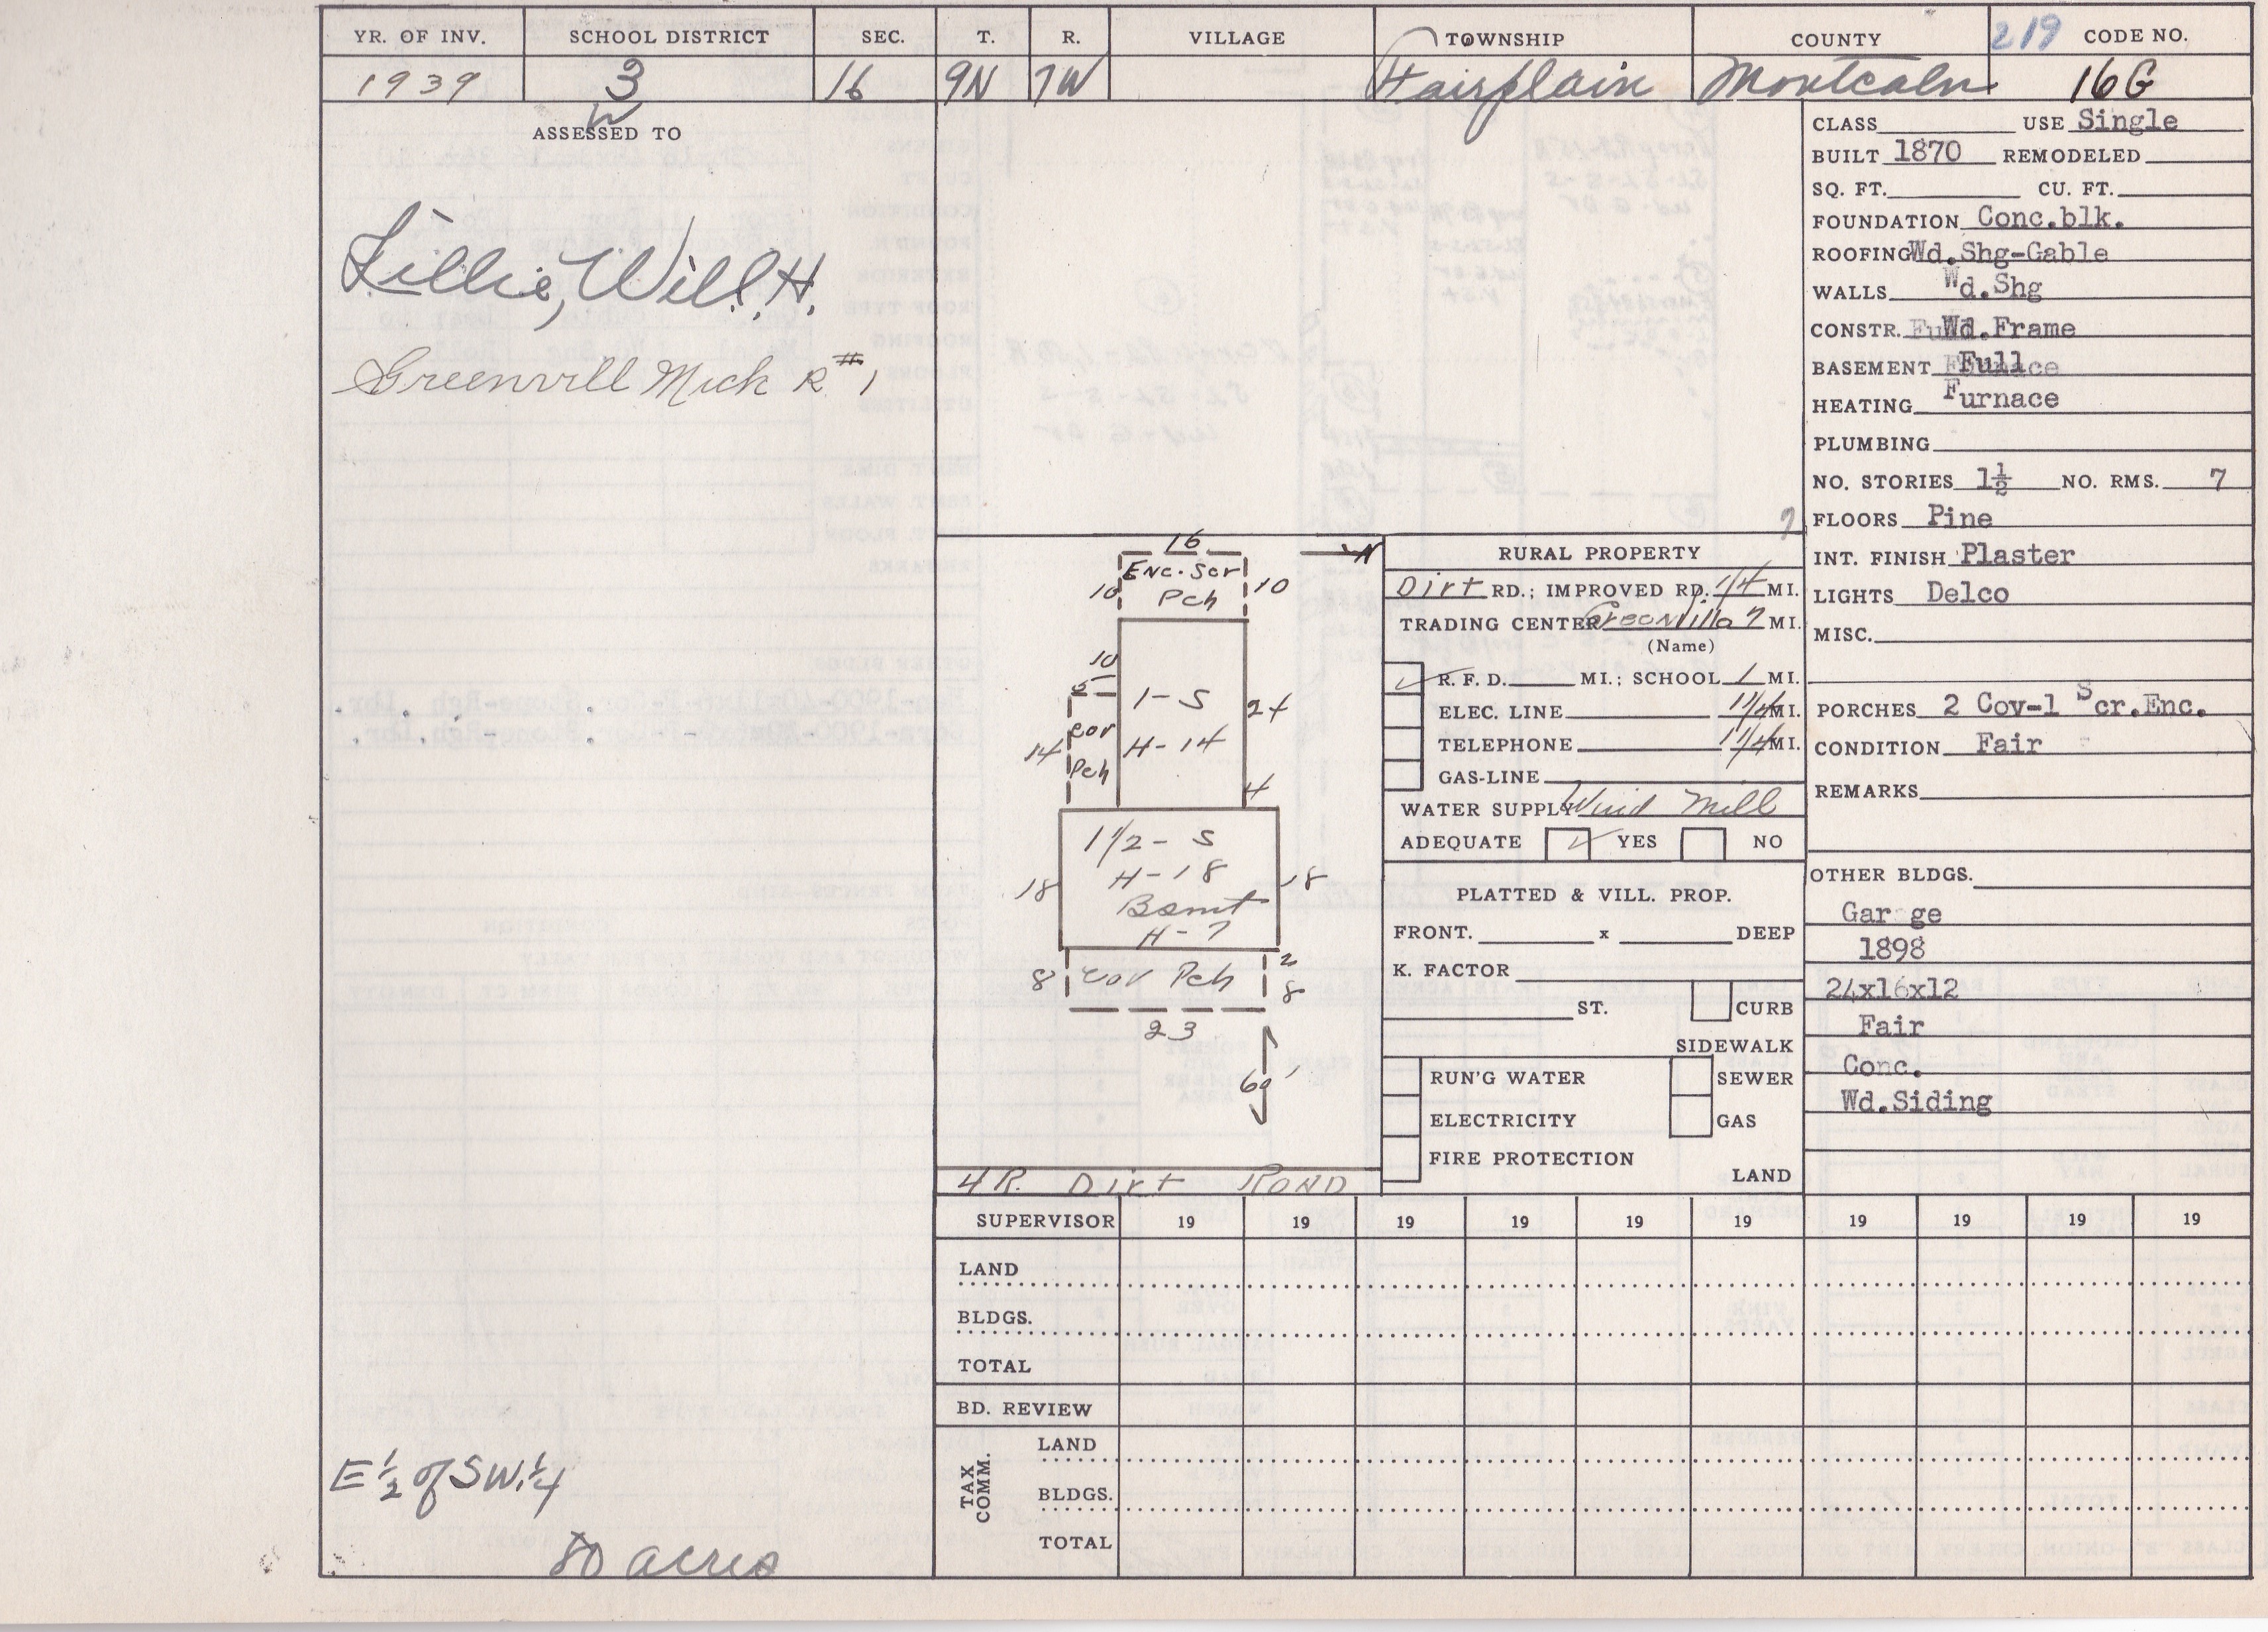 YR. OF INV. SCHOOL DISTRICT SEC. T. R. VILLAGE TOWNSHIP COUNTY 219 CODE NO.
1939 3 16 9N 7W Fairplain Montcalm 16G
W
ASSESSED TO
Lillie, Will H.
Greenvill Mich R#1
E 1/2 of SW. 1/4
80 acres
16
N
Enc. Scr
Pch
10 10
10
5
1-S
24
Cor
H-14
14
Pch
4
1 1/2 - S
H-18
18 18
Bsmt
H-7
8 Cov Pch 2
8
23
60'
4 R. Dirt ROAD
RURAL PROPERTY
Dirt RD.; IMPROVED RD. 1/4 MI.
TRADING CENTER Greenville 7 MI.
(Name)
✓ R. F. D. MI.; SCHOOL 1 MI.
ELEC. LINE 1 1/4 MI.
TELEPHONE 1 1/4 MI.
GAS-LINE
WATER SUPPLY Wind Mill
ADEQUATE ✓ YES NO
PLATTED & VILL. PROP.
FRONT. x DEEP
K. FACTOR
ST. CURB
SIDEWALK
RUN'G WATER SEWER
ELECTRICITY GAS
FIRE PROTECTION
LAND
CLASS USE Single
BUILT 1870 REMODELED
SQ. FT. CU. FT.
FOUNDATION Conc.blk.
ROOFING Wd.Shg-Gable
WALLS Wd.Shg
CONSTR. Wd.Frame
BASEMENT Full
HEATING Furnace
PLUMBING
NO. STORIES 1½ NO. RMS. 7
7
FLOORS Pine
INT. FINISH Plaster
LIGHTS Delco
MISC.
PORCHES 2 Cov-1 Scr.Enc.
CONDITION Fair
REMARKS
OTHER BLDGS.
Gar ge
1898
24x16x12
Fair
Conc.
Wd.Siding
SUPERVISOR 19 19 19 19 19 19 19 19 19 19
LAND
BLDGS.
TOTAL
BD. REVIEW
TAX COMM.
LAND
BLDGS.
TOTAL